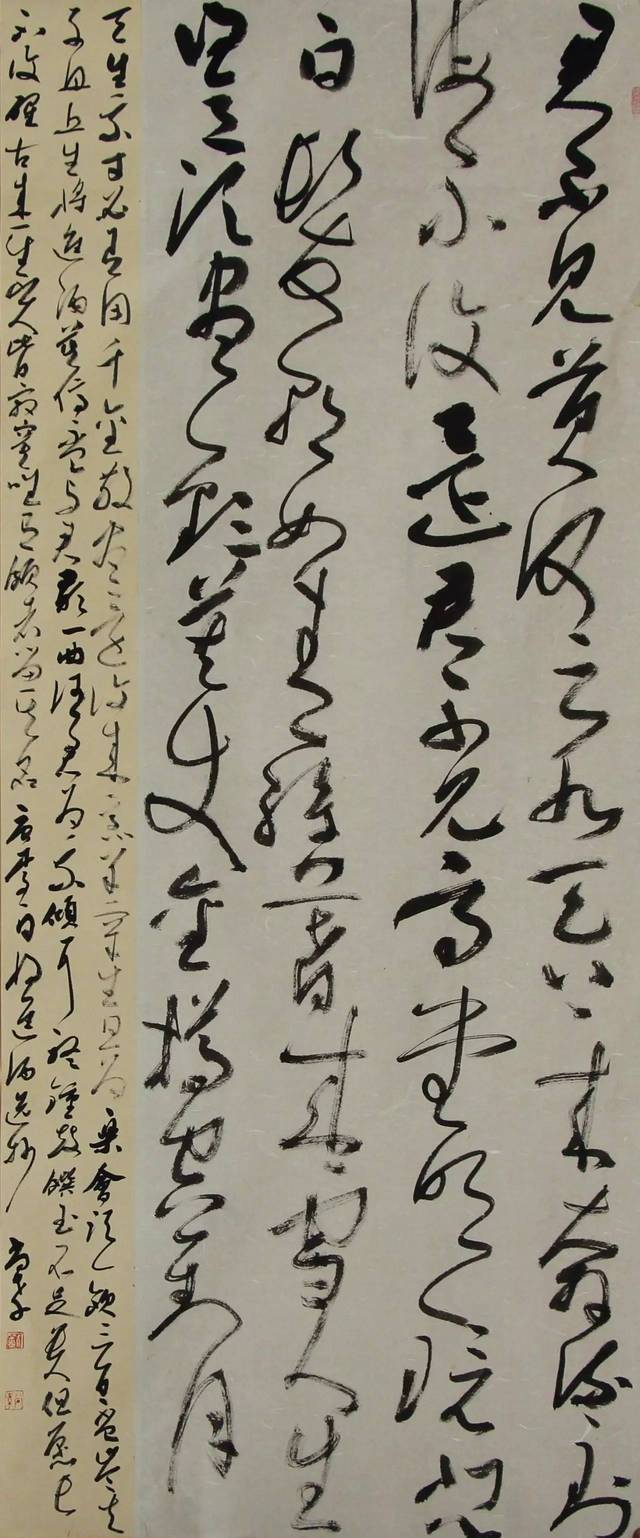 君不見黄河之水天上來奔流到
海不復還君不見高堂明鏡悲
白髮朝如青絲暮成雪人生
得意須盡歡莫使金樽空對月
天生我才必有用千金散盡還復來烹羊宰牛且為樂會須一飲三百盃岑夫
子丹丘生將進酒莫停盃與君歌一曲請君為我傾耳聽鐘鼓饌玉不足貴但愿長
不復醒古來聖賢皆寂寞唯有飲者留其名唐李白將進酒選抄